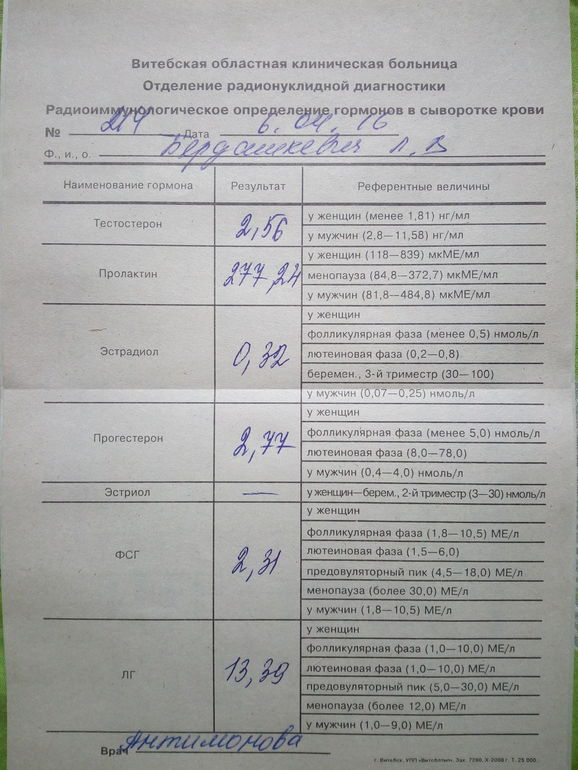 Витебская областная клиническая больница
Отделение радионуклидной диагностики
Радиоиммунологическое определение гормонов в сыворотке крови
№ 214 Дата 6.04.16
Ф., и., о. Бердашкевич Л. В
Наименование гормона Результат Референтные величины
Тестостерон 2,56 у женщин (менее 1,81) нг/мл
у мужчин (2,8—11,58) нг/мл
Пролактин 277,24 у женщин (118—839) мкМЕ/мл
менопауза (84,8—372,7) мкМЕ/мл
у мужчин (81,8—484,8) мкМЕ/мл
Эстрадиол 0,32 у женщин
фолликулярная фаза (менее 0,5) нмоль/л
лютеиновая фаза (0,2—0,8)
беремен., 3-й триместр (30—100)
у мужчин (0,07—0,25) нмоль/л
Прогестерон 2,77 у женщин
фолликулярная фаза (менее 5,0) нмоль/л
лютеиновая фаза (8,0—78,0)
у мужчин (0,4—4,0) нмоль/л
Эстриол — у женщин—берем., 2-й триместр (3—30) нмоль/л
ФСГ 2,31 у женщин
фолликулярная фаза (1,8—10,5) МЕ/л
лютеиновая фаза (1,5—6,0)
предовуляторный пик (4,5—18,0) МЕ/л
менопауза (более 30,0) МЕ/л
у мужчин (1,8—10,5) МЕ/л
ЛГ 13,39 у женщин
фолликулярная фаза (1,0—10,0) МЕ/л
лютеиновая фаза (1,0—10,0) МЕ/л
предовуляторный пик (5,0—30,0) МЕ/л
менопауза (более 12,0) МЕ/л
у мужчин (1,0—9,0) МЕ/л
Врач Антимонова
г. Витебск, УПП «Витебчпип». Зак. 7280. X-2008 г. Т. 25 000.